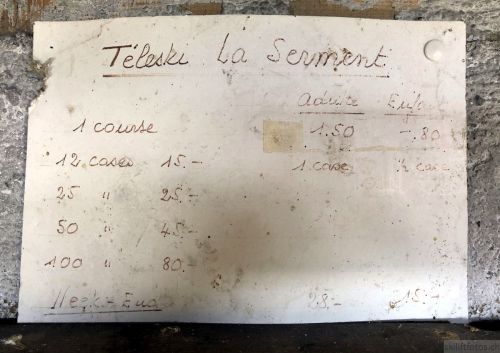 Téleski La Serment
Adulte Enf.
1 course 1.50 -.80
12 cases 15.- 1 case ½ case
25 " 25.-
50 " 45.-
100 " 80.-
Week-End 28.- 15.-
skiliftfotos.ch